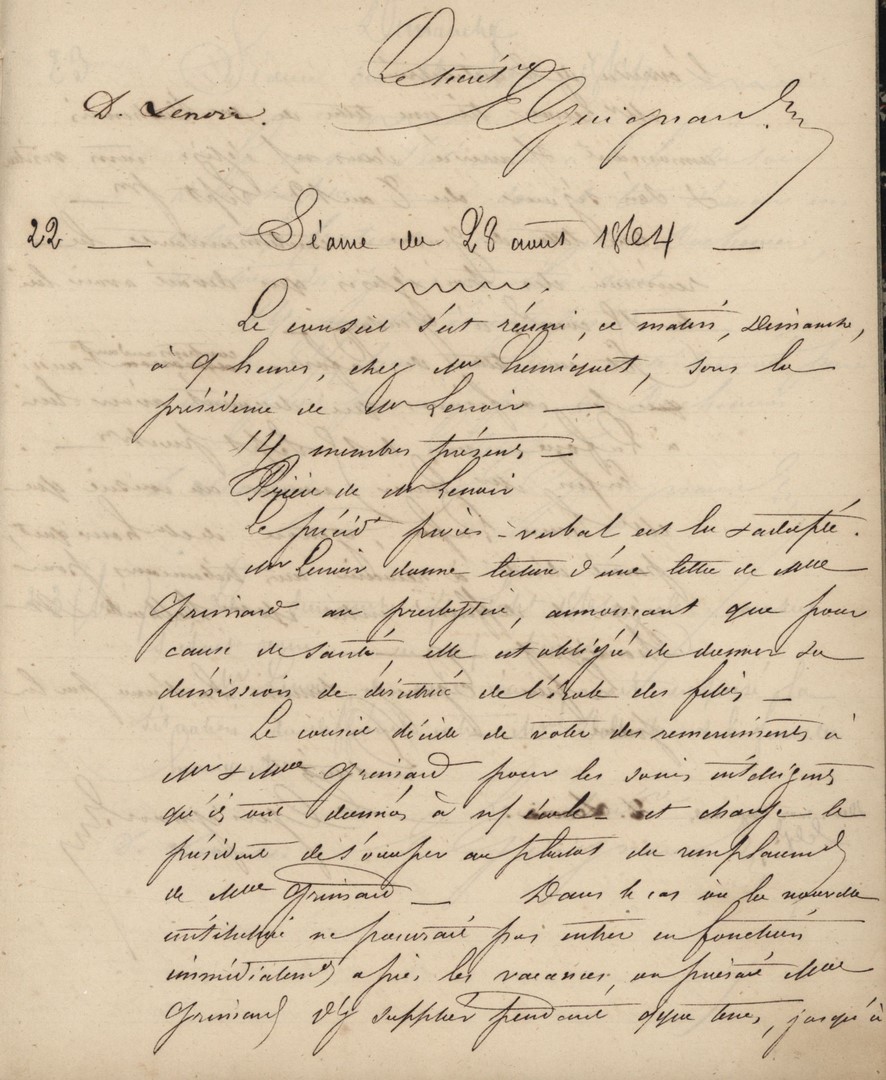 Le Secrét re
D. Lenoir.
E Guignard
22 — Séance du 28 aout 1864 —
Le conseil s'est réuni, ce matin, Dimanche,
à 9 heures, chez Mr Henriquet, sous la
présidence de Mr Lenoir —
14 membres présents —
Prière de Mr Lenoir
Le précédt procès-verbal est lu & adopté.
Mr Lenoir donne lecture d'une lettre de Mme
Grimard au presbytère, annonçant que pour
cause de santé, elle est obligée de donner sa
démission de directrice de l'école des filles —
Le conseil décide de voter des remerciments à
Mr & Mme Grimard pour les soins intelligents
qu'ils ont donnés à nf école et charge le
président de s'occuper au plutot du remplacemt
de Mme Grimard — Dans le cas où la nouvelle
institutrice ne pourrait pas entrer en fonctions
immédiatemt après les vacances, on prierait Mme
Grimard d'y suppléer pendant qque tems, jusqu'à